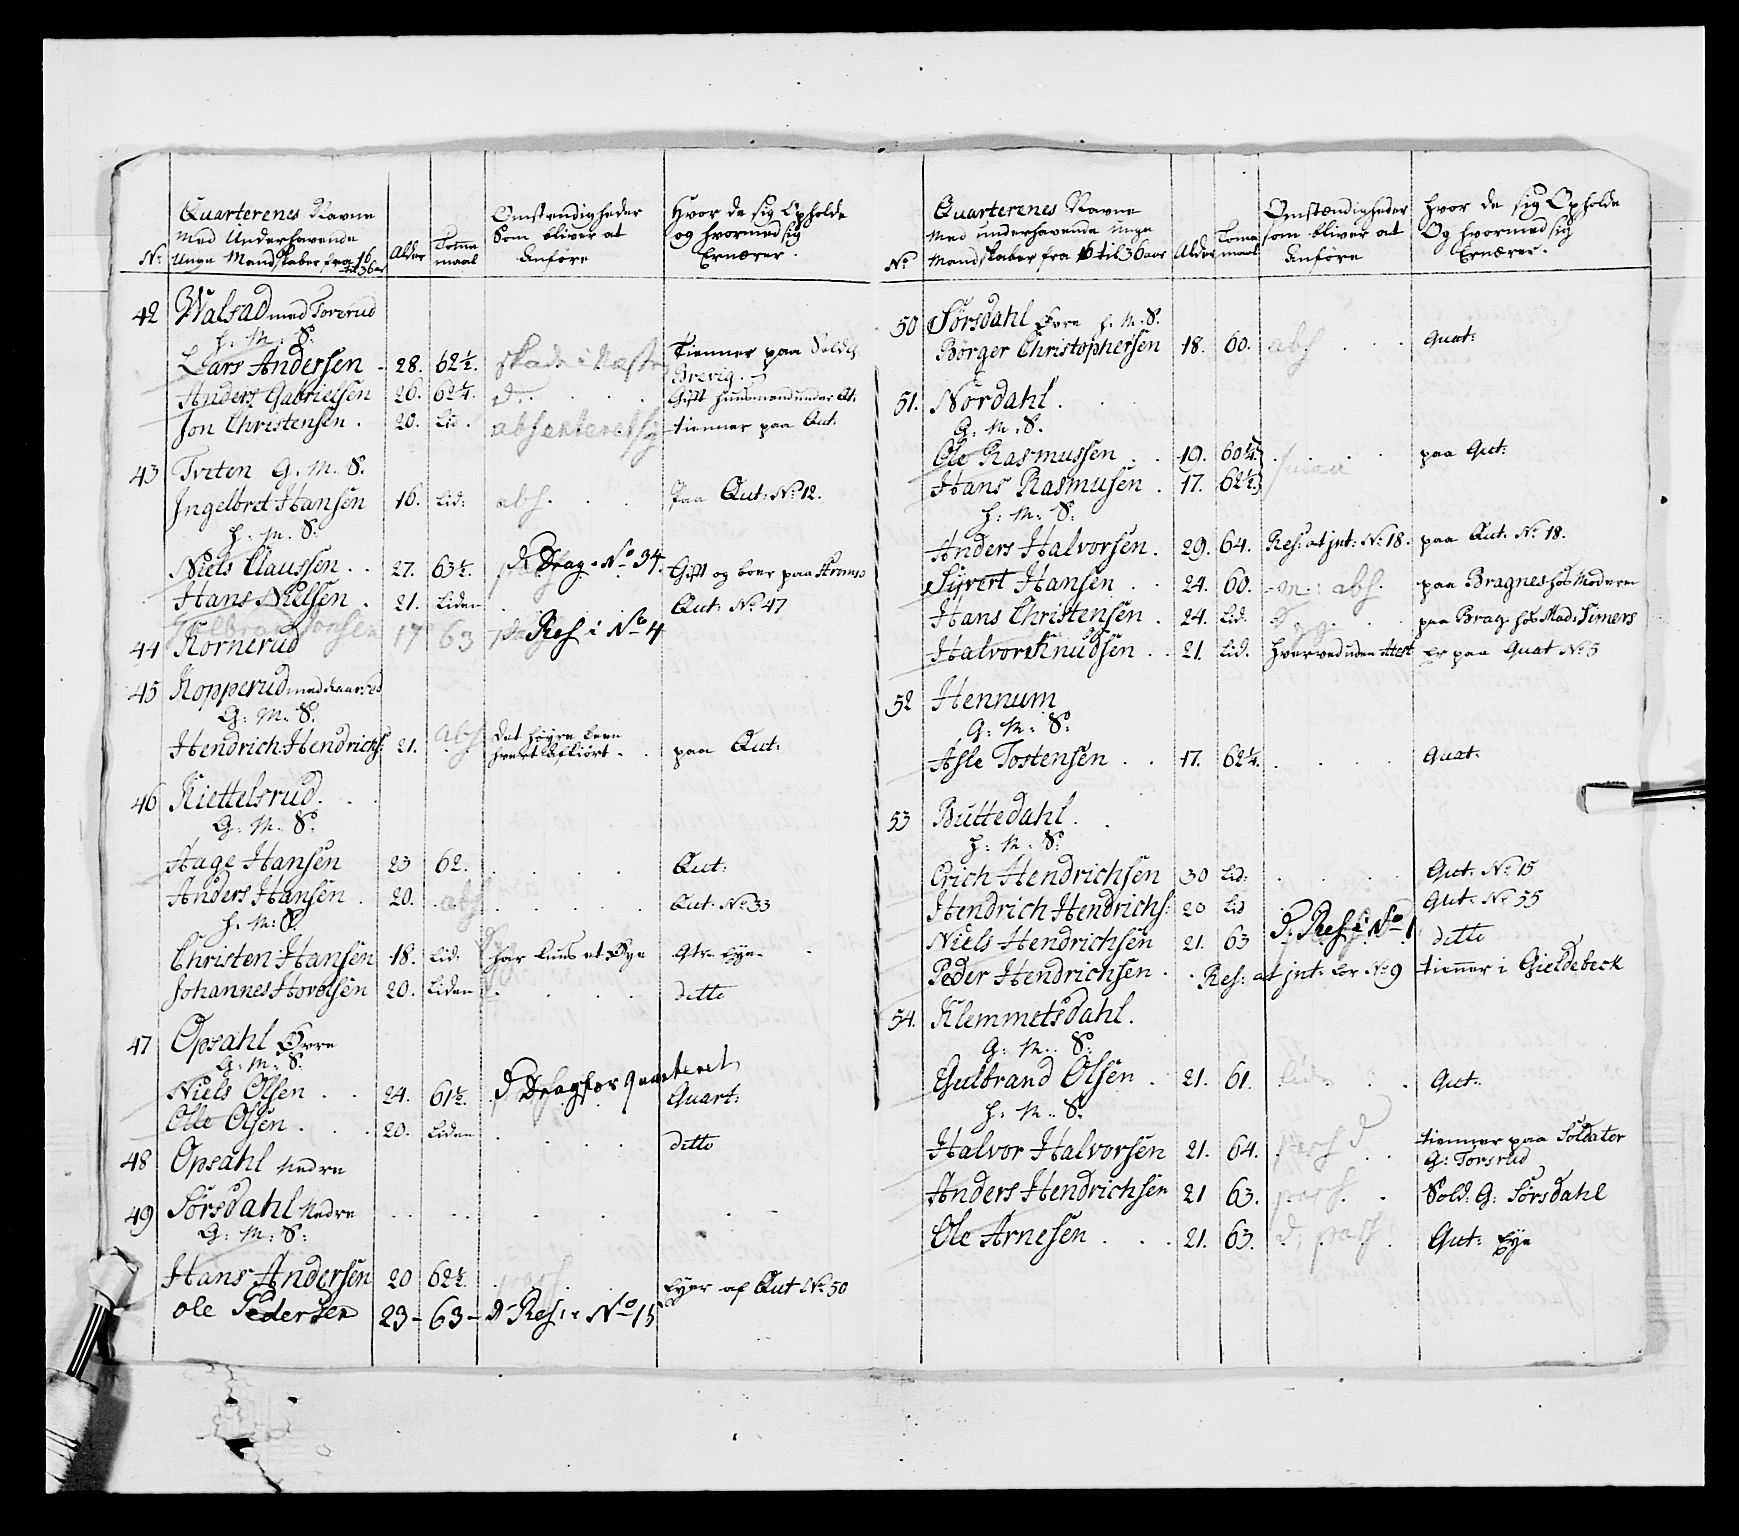 Quarterenes Navne
Med Underhavende
No: Unge Mandskaber fra 16 til 36 aar Alder Tomme maal
Omstendigheder Som bliver at Anføre
Hvor de sig Opholde og hvormed sig Ernærer.
42 Walstad med Torsrud
H. M. S:
Lars Andersen - 28. 62½. skade i Tienner paa
Brevig.
Anders Gabrielsen 26. 62¼. d. Gift Huusmand under Qt.
Jon Christensen. 20. Lid. absenteret sig tienner paa Qut:
43 Tveten G. M. S.
Ingelbret Hansen 16. Lid: abs. Paa Qut: No: 12.
H. M. S:
Niels Claussen.. 27. 63½. D Drag. No 34. Gift og boer paa Strømsø
Hans Nielsen. 21. Liden Qut: No: 47
17 63
44 Kornerud D Res i No 4
45 Kopperud med
G: M: S:
Hendrich Hendrichs: 21. abs Det høyre been
paa Qut:
46 Kiettelsrud...
G: M: S:
Aage Hansen 23 62. Qut:
Anders Hansen. 20. abs Qut: No: 33
H. M: S:
Christen Hansen 18. Lid. har kuns et Øye Qtr. Eye.
Johannes Hovelsen 20. Liden ditto
47 Opsahl Øvre
G: M: S:
Niels Olsen.. 24. 61½. D Drag for Quarteret Quart:
Olle Olsen... 20. Liden ditto
48 Opsahl Nedre
49 Sørsdahl Nedre
G: M: S:
Hans Andersen 20 62½. Eyer af Qut No: 50
Ole Pedersen 23 - 63 - D Res: i No 15
Quarterenes Navne
Med underhavende unge
No Mandskaber fra 16 til 36 aar Alder Tomme maal
Omstændigheder som bliver at Anføre
Hvor de sig Opholde Og hvormed sig Ernærer.
50 Sørsdahl Øvre H. M. S:
Børger Christophersen 18. 60. abs Quat:
51. Nordahl.
G: M: S.
Ole Rasmussen.. 19. 60¼. paa Qut:
Hans Rasmusen. 17. 62½.
H: M: S:
Anders Halvorsen. 29. 64. Res: at jnt: No: 18. paa Qut. No: 18.
Syvert Hansen.. 24. 60. abs. paa Bragnes hos Moderen
Hans Christensen. 24. Lid. D paa Brag. hos Mad: Simers
Halvor Knudsen.. 21. Lid. Hverved uden Hest Er paa Quat No: 5
52 Hennum
G: M: S:
Asle Tostensen.. 17. 62¼. Quat:
53 Buttedahl.
H: M: S:
Erich Hendrichsen 30 Lid: Qut: No: 15
Hendrich Hendrichs: 20 Lid Qut: No: 55
Niels Hendrichsen 21. 63 D: Res i No 1 ditto
Peder Hendrichsen. Res: at jnt: Cor: No 9 tienner i Gieldebeck
54. Klemmetsdahl.
G: M: S:
Gulbrand Olsen. 21. 61. Lid. Qut:
H. M: S:
Halvor Halvorsen 21. 64. pass D tienner paa Soldater
G: Torsrud
Anders Hendrichsen 21 63. pass. Sold: G: Sørsdahl
Ole Arnesen... 21. 63. D: pass Qut: Eye